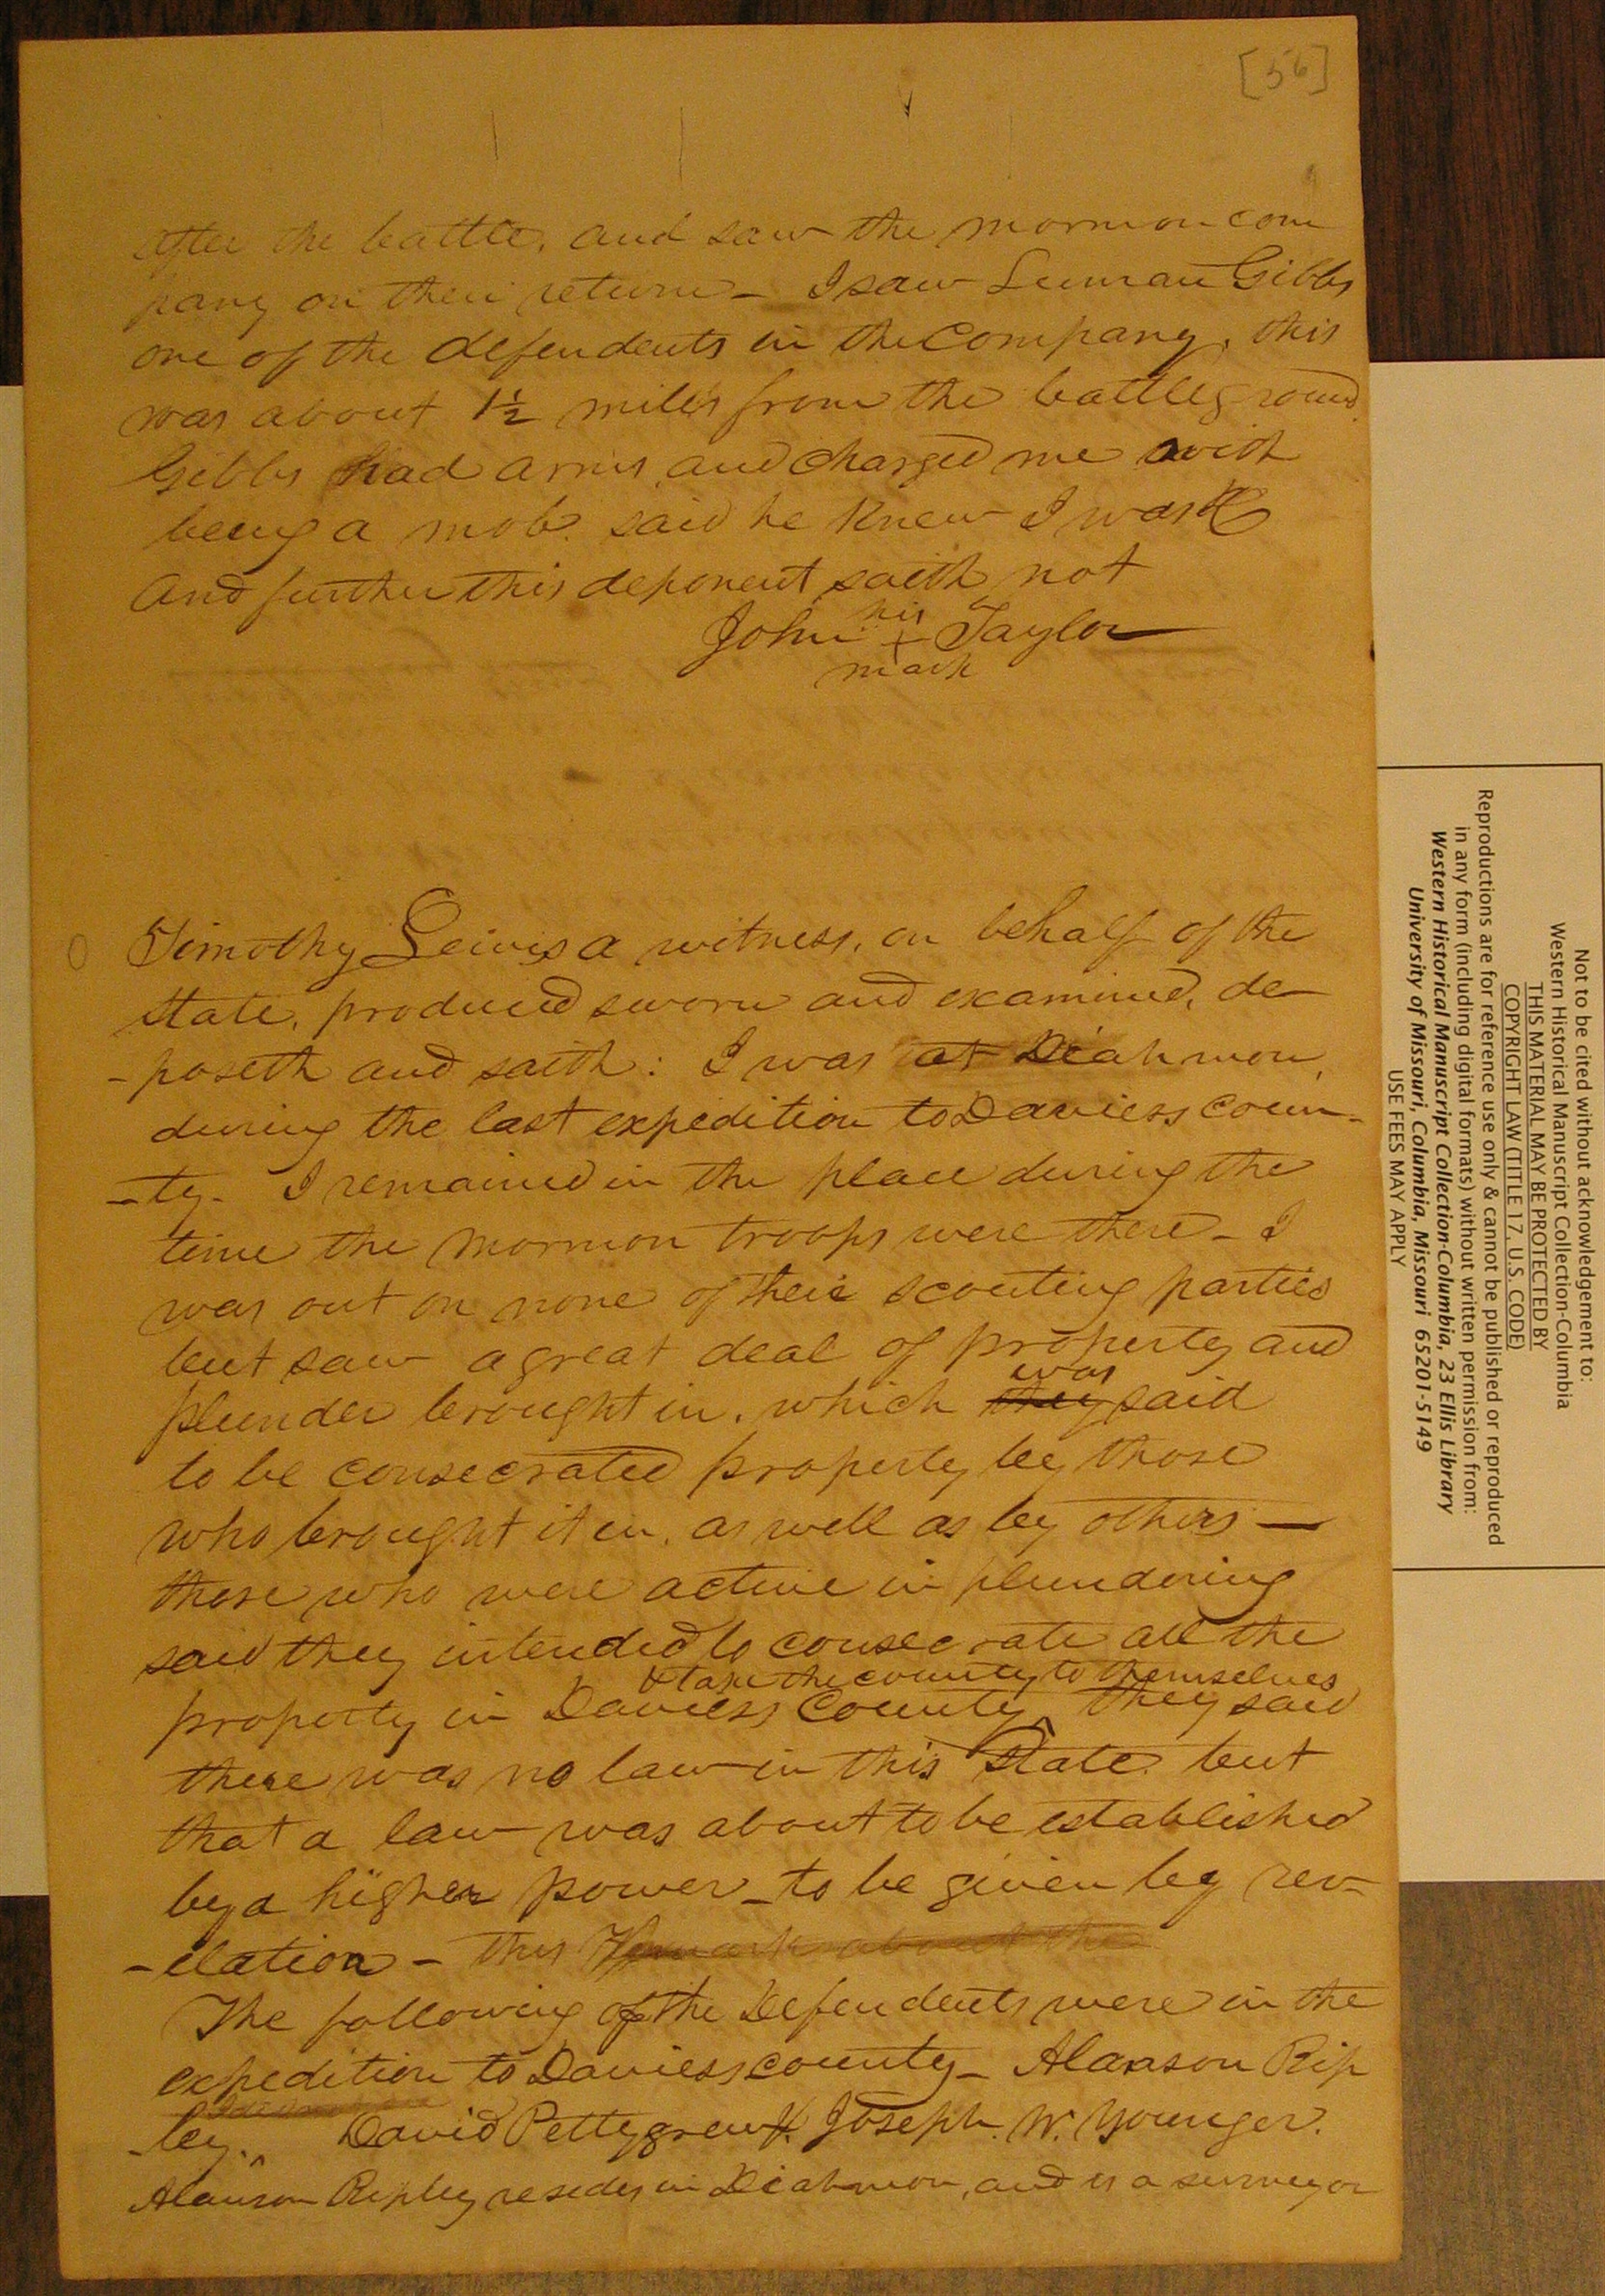 [56]
after the battle, and saw the mormon com
pany on their return - I saw Luman Gibbs
one of the defendents in the company, this
was about 1½ miles from the battleground
Gibbs had arms, and charged me with
being a mob. said he knew I was
And further this deponent saith not
John his + mark Taylor
Timothy Lewis a witness, on behalf of the
state, produced sworn and examined, de
-poseth and saith: I was at Diahmon,
during the last expedition to Daviess coun-
-ty. I remained in the place during the
time the mormon troops were there - I
was out on none of their scouting parties
but saw a great deal of property and
plunder brought in, which they was said
to be consecrated property by those
who brought it in, as well as by others —
those who were active in plundering
said they intended to consecrate all the
& take the county to themselves
property in Daviess County ^ they said
there was no law in this State, but
that a law was about to be established
by a higher power - to be given by rev-
-elation - this remark about the
The following of the Defendents were in the
expedition to Daviess county - Alanson Rip
-ley. ^ David Pettygrew. Joseph. W. Younger.
Alanson Ripley resides in Diahmon, and is a surveyor
Not to be cited without acknowledgement to:
Western Historical Manuscript Collection-Columbia
THIS MATERIAL MAY BE PROTECTED BY
COPYRIGHT LAW (TITLE 17, U.S. CODE)
Reproductions are for reference use only & cannot be published or reproduced
in any form (including digital formats) without written permission from:
Western Historical Manuscript Collection-Columbia, 23 Ellis Library
University of Missouri, Columbia, Missouri 65201-5149
USE FEES MAY APPLY